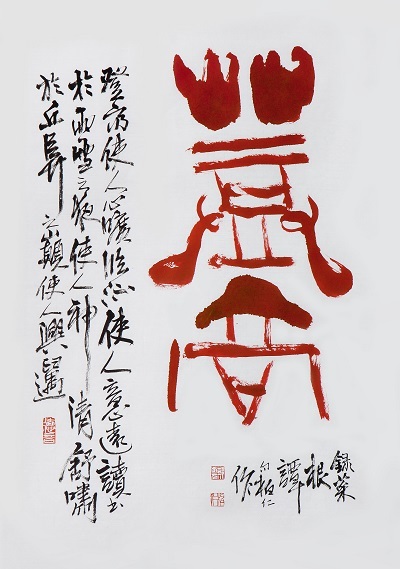 登高使人心曠臨流使人意遠讀書
於雨雪之夜使人神清舒嘯
於丘阜之巔使人興邁
錄菜
根
譚
句柏仁
作